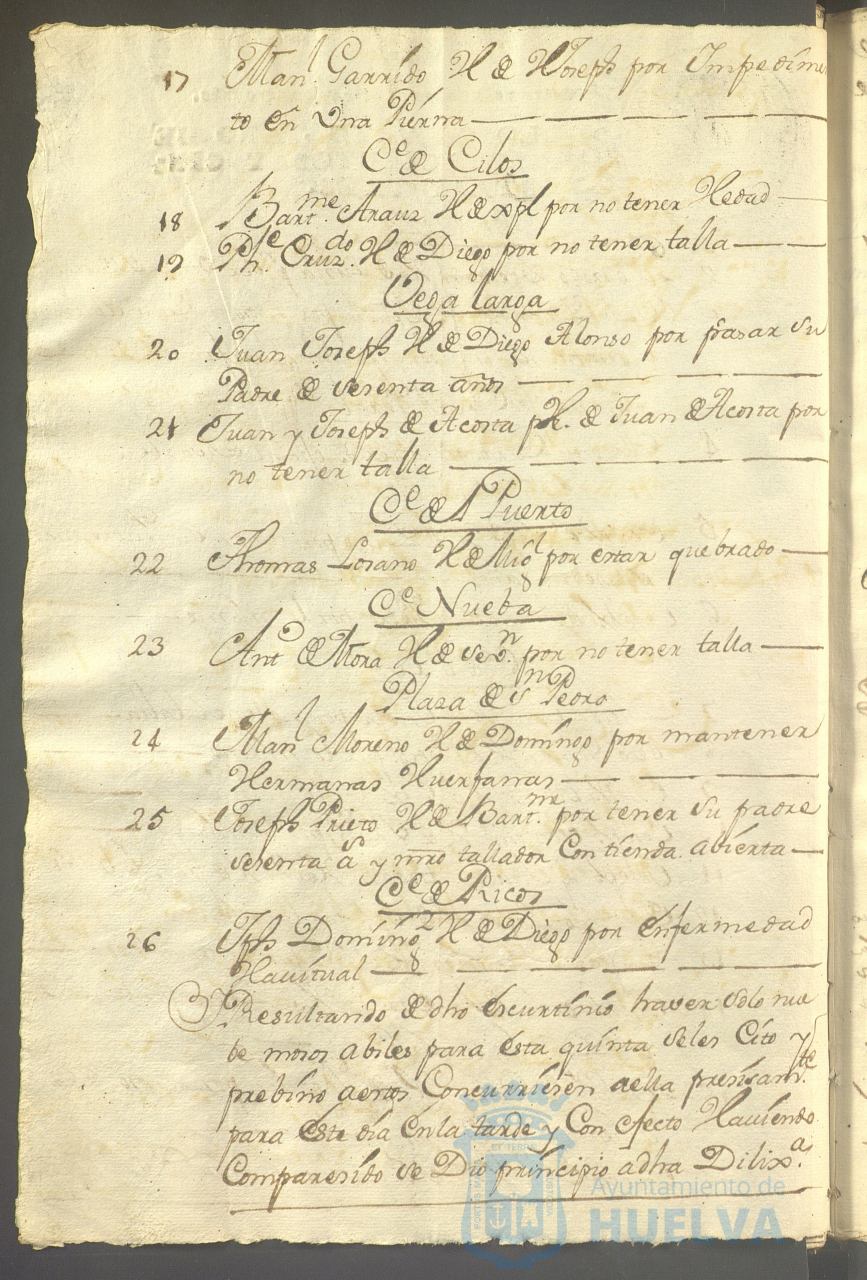 17 Man.l Garrido H de Joseph por Impedimen
to en Una Pierna
C.e de Cilos
18 Bart.me Arauz H de xpl por no tener Hedad
19 Ph.e Cruz.do H de Diego por no tener talla
Vega larga
20 Juan Joseph H de Diego Alonso por pasar su
Padre de sesenta años
21 Juan y Joseph de Acosta H. de Juan de Acosta por
no tener talla
C.e del Puerto
22 Thomas Losano H de Mig.l por estar quebrado
C.e Nueba
23 Ant.o de Mora H de Seb.n por no tener talla
Plaza de S.n Pedro
24 Man.l Moreno H de Domingo por mantener
Hermanas Huerfanas
25 Joseph Prieto H de Bart.me por tener su padre
sesenta a.s y mro tallador Con tienda abierta
C.e de Ricos
26 Jph Doming.z H de Diego por enfermedad
Havitual
Resultando de dho escurtinio haver solo nue
be mosos abiles para esta quinta seles Cito y
prebino aestos Concurriesen aella presisam.te
para este dia en la tarde y Con efecto Haviendo
Comparesido se Dio principio adha Dilix.a
Ayuntamiento de
HUELVA